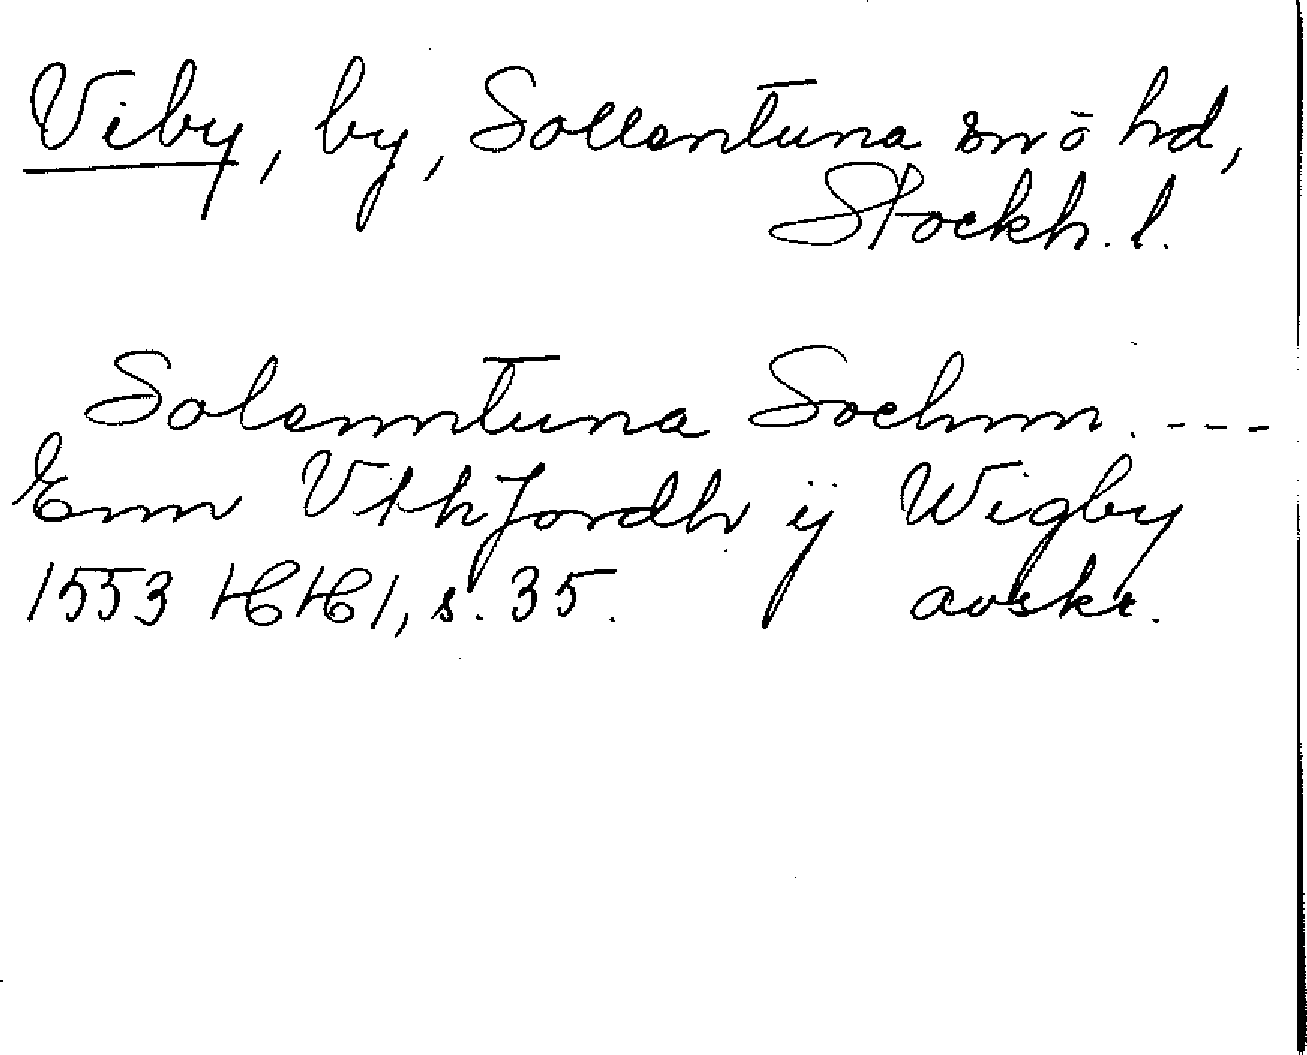 Viby, by, Sollentuna sn o hd,
Stockh. l.
Solenntuna Sochnn. ---
Enn Vthjordh ij Wigby
1553 HH 1, s. 35. avskr.